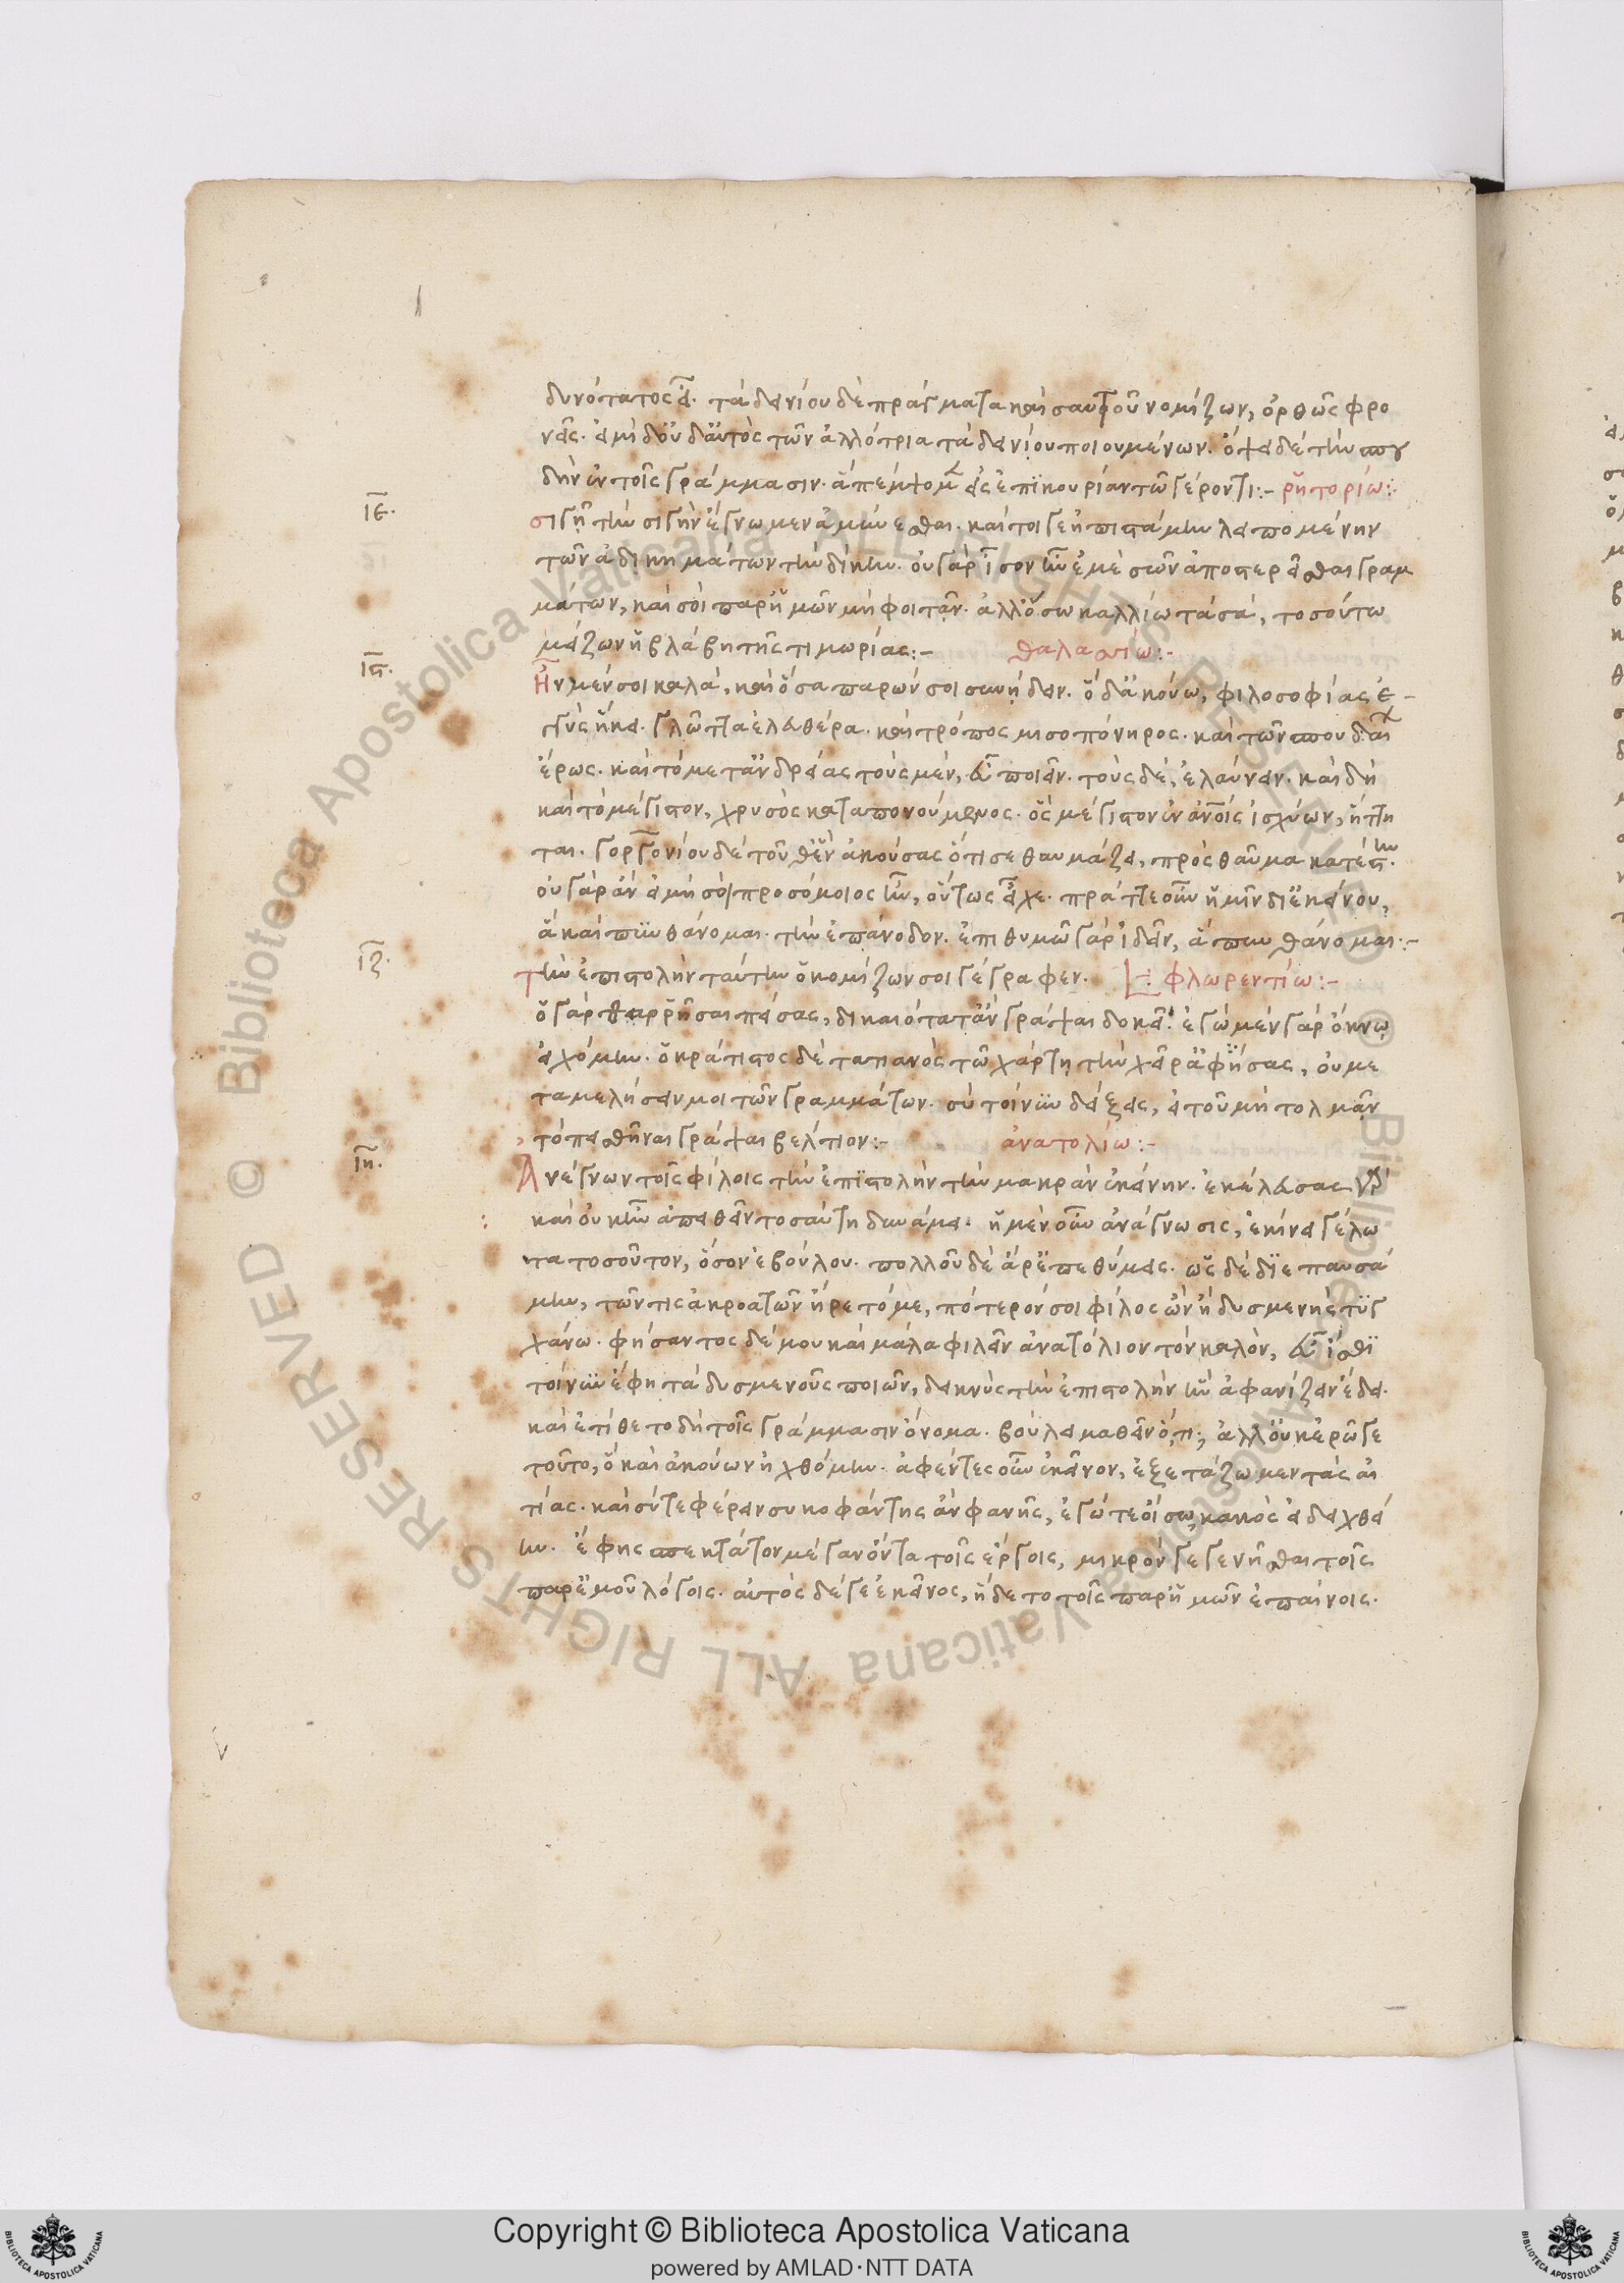 δυνότατος εἶ. τὰ δανίου δὲ πράγματα καὶ σαυτοῦ νομίζων, ὀρθῶς φρο
νεῖς. εἰ μὴ δ' οὐδ' αὐτὸς τῶν ἀλλότρια τὰ δανίου ποιουμένων. ὄψει δέ τὴν σπου
δὴν ἐν τοῖς γράμμασιν. ἃ πέμψομεν εἰς ἐπικουρίαν τῶ γέροντι:– ῥητορίω:
ιε.
σιγῆ τὴν σιγὴν ἔγνωμεν ἀμύνεσθαι. καίτοι γε ἠπιστάμην λειπομένην
τῶν ἀδικημάτων τὴν δίκην. οὐ γὰρ ἴσον ἦν ἐμὲ σῶν ἀποστερεῖσθαι γραμ
μάτων, καὶ σοὶ παρ' ἡμῶν μὴ φοιτᾶν. ἀλλ' ὅσω καλλίω τὰ σά, τοσούτω
μείζων ἡ βλάβη τῆς τιμωρίας:– θαλασσίω:–
ιϛ.
Ἦν μέν σοι καλά, καὶ ὅσα παρών σοι συνῄδειν. ὃ δ' ἀκούω, φιλοσοφίας ἐ–
γγὺς ἥκει. γλῶττα ἐλευθέρα. καὶ τρόπος μισοπόνηρος. καὶ τῶν σπουδαίων
ἔρως. καὶ τὸ μετ' ἀνδρείας τοὺς μέν, εὖ ποιεῖν. τοὺς δέ, ἐλαύνειν. καὶ δὴ
καὶ τὸ μέγιστον, χρυσὸς καταπονούμενος. ὃς μέγιστον ἐν ἀνοις ἰσχύων, ἥττη
ται. γοργονίου δὲ τοῦ θεῖν ἀκούσας ὅτι σε θαυμάζει, πρὸς θαῦμα κατέστην.
οὐ γὰρ ἂν εἰ μή σοι προσόμοιος ἦν, οὕτως εἶχε. πράττε οὖν ἡμῖν δι' ἐκείνου,
ἃ καὶ πυνθάνομαι. τὴν ἐπάνοδον. ἐπιθυμῶ γὰρ ἰδεῖν, ἃ πυνθάνομαι:–
ιζ.
τὴν ἐπιστολὴν ταύτην ὁ κομίζων σοι γέγραφεν. φλωρεντίω:–
ὁ γὰρ θαρρῆσαι πείσας, δικαιότατ' ἂν γράψαι δοκεῖ. ἐγὼ μὲν γὰρ ὄκνω
εἰχόμην. ὁ κράτιστος δὲ τατιανὸς τῶ χάρτη τὴν χεῖρ' ἀφῆσας, οὐ με
ταμελήσειν μοι τῶν γραμμάτων. σὺ τοίνυν δείξεις, εἰ τοῦ μὴ τολμᾶν
τὸ πεισθῆναι γράψαι βέλτιον:– ἀνατολίω:–
ιη.
Ἀνέγνων τοῖς φίλοις τὴν ἐπιστολὴν τὴν μακρὰν ἐκείνην. ἐκέλευσας γὰρ
καὶ οὐκ ἦν ἀπειθεῖν τοσαύτη δυνάμει. ἡ μὲν οὖν ἀνάγνωσις, ἐκίνει γέλω
τα τοσοῦτον, ὅσον ἐβούλου. πολλοῦ δὲ ἄρ' ἐπεθύμεις. ὡς δὲ δϊεπαυσά
μην, τῶν τις ἀκροατῶν ἤρετό με, πότερόν σοι φίλος ὢν ἢ δυσμενὴς τυγ
χάνω. φήσαντος δέ μου καὶ μάλα φιλεῖν ἀνατόλιον τὸν καλὸν, εὖ ἴσθι
τοίνυν ἔφη τὰ δυσμενοῦς ποιῶν, δεικνὺς τὴν ἐπιστολὴν ἣν ἀφανίζειν ἔδει.
καὶ ἐτίθετο δὴ τοῖς γράμμασιν ὄνομα. βούλει μαθεῖν ὅ,τι; ἀλλ' οὐκ ἐρῶ γε
τοῦτο, ὃ καὶ ἀκούων ἠχθόμην. ἀφέντες οὖν ἐκεῖνον, ἐξετάζωμεν τὰς αἰ
τίας. καὶ σύ τε φέρειν συκοφάντης ἂν φανῆς, ἐγώ τε οἴσω κακὸς εἰ δειχθεί
ην. ἔφης σπεκτάτον μέγαν ὄντα τοῖς ἔργοις, μικρὸν γεγενῆσθαι τοῖς
παρ' ἐμοῦ λόγοις. αὐτὸς δέ γε ἐκεῖνος, ἥδετο τοῖς παρ' ἡμῶν ἐπαίνοις.
Copyright © Biblioteca Apostolica Vaticana
powered by AMLAD·NTT DATA